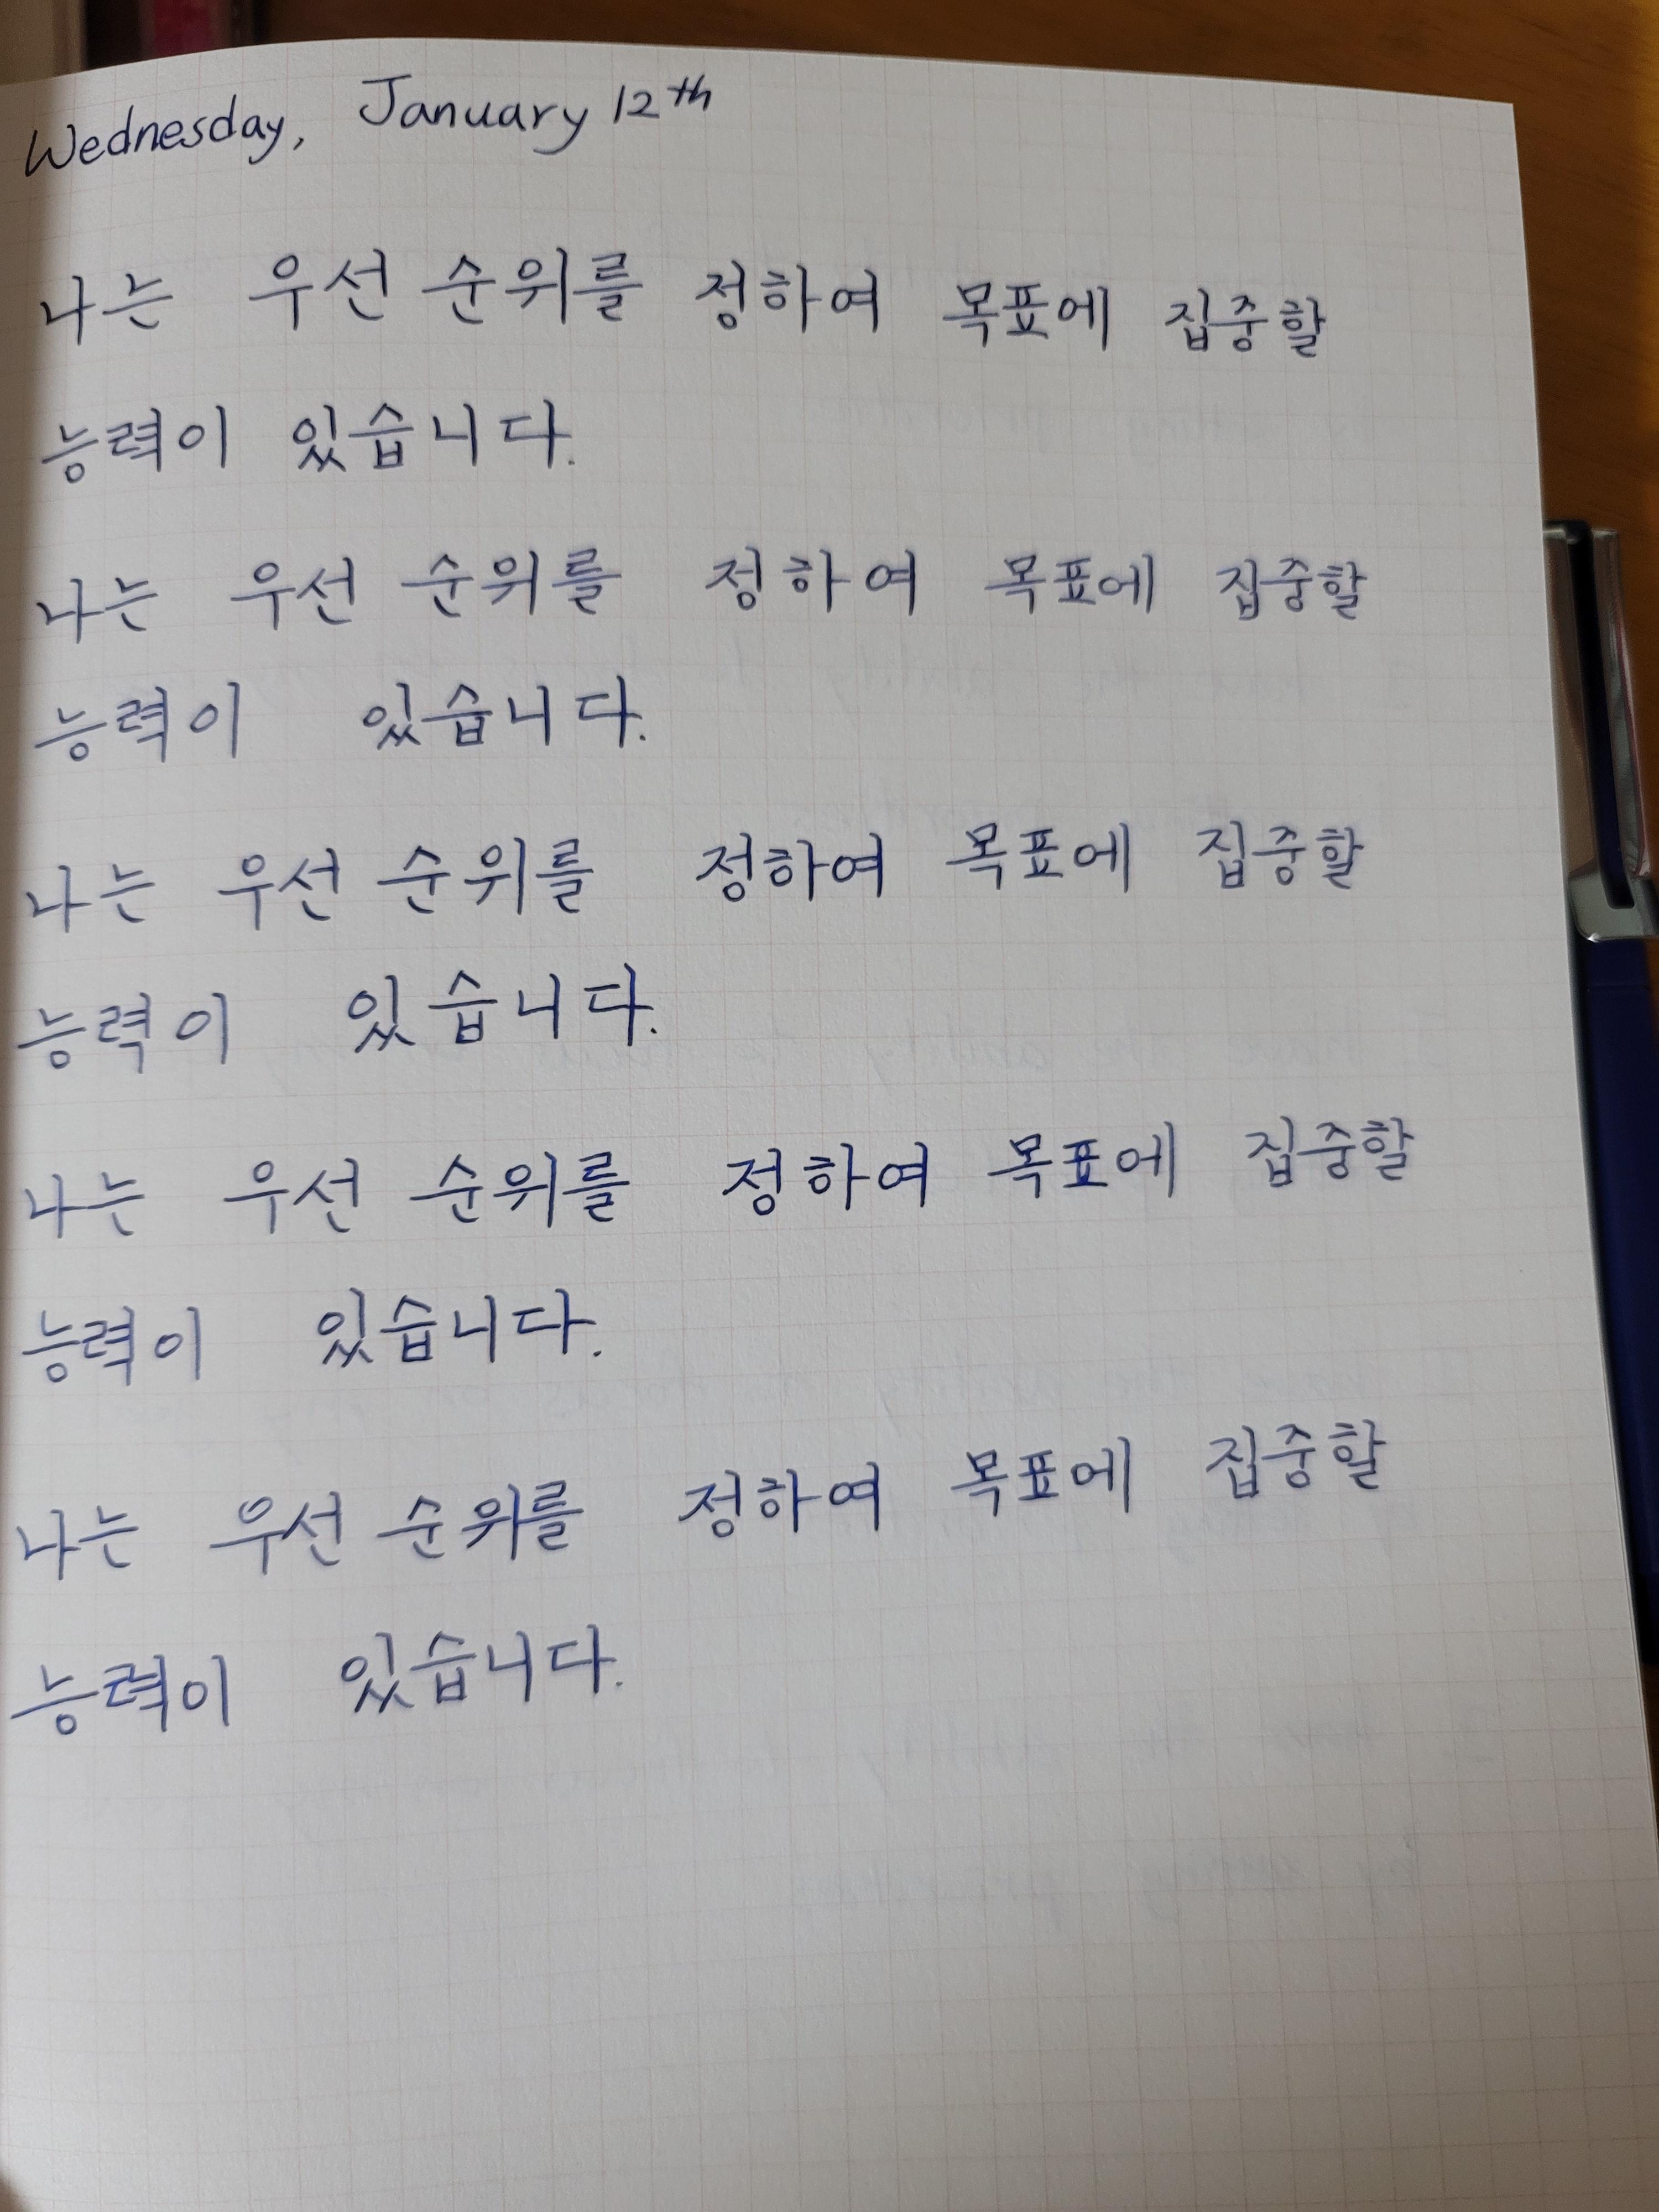 Wednesday, January 12th
나는 우선 순위를 정하여 목표에 집중할
능력이 있습니다.
나는 우선 순위를 정하여 목표에 집중할
능력이 있습니다.
나는 우선 순위를 정하여 목표에 집중할
능력이 있습니다.
나는 우선 순위를 정하여 목표에 집중할
능력이 있습니다.
나는 우선 순위를 정하여 목표에 집중할
능력이 있습니다.